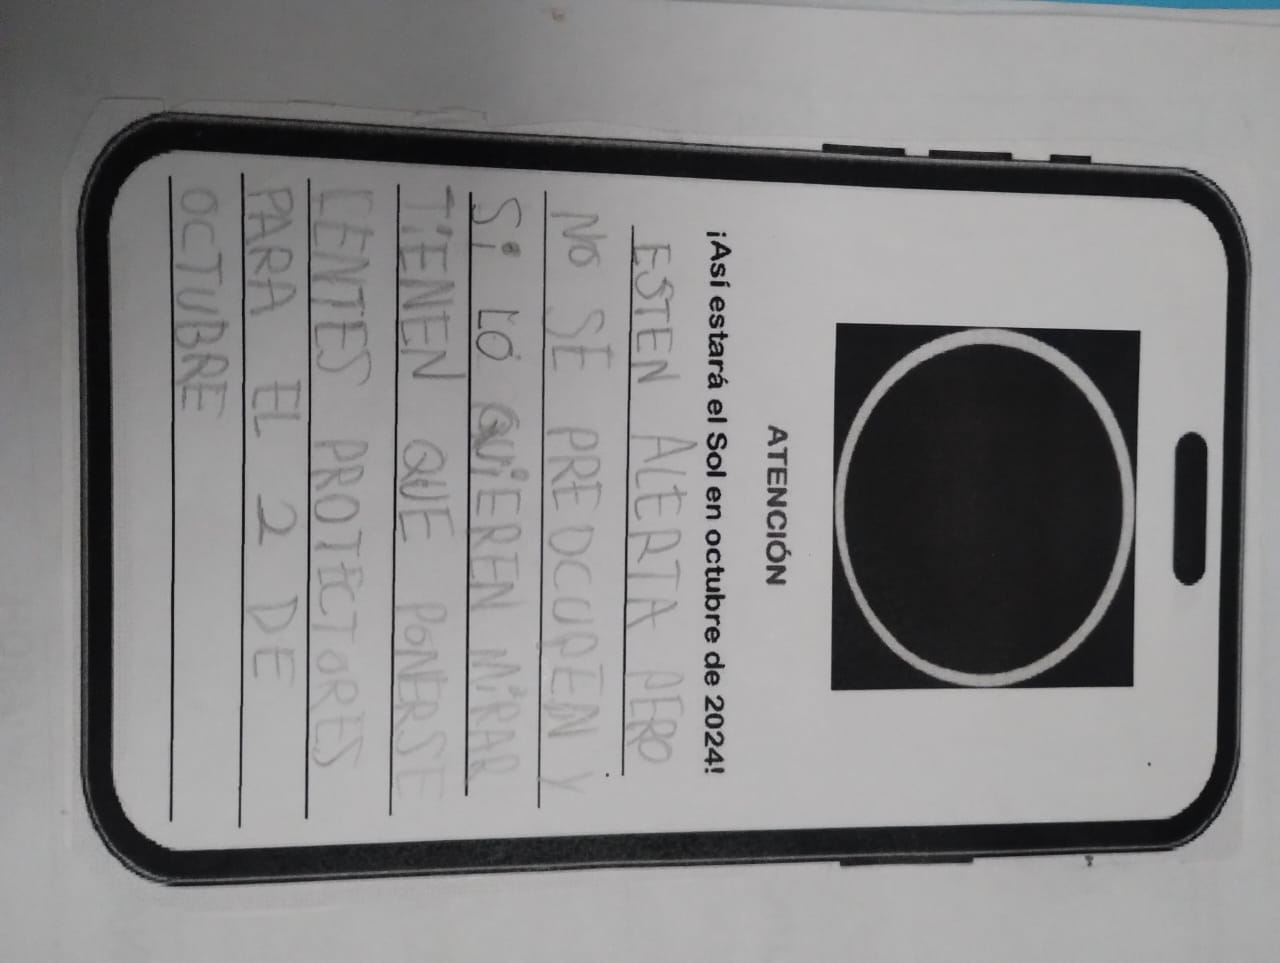 ATENCIÓN
¡Así estará el Sol en octubre de 2024!
ESTEN ALERTA PERO
NO SE PREOCUPEN Y
SI LO QUIEREN MIRAR
TIENEN QUE PONERSE
LENTES PROTECTORES
PARA EL 2 DE
OCTUBRE